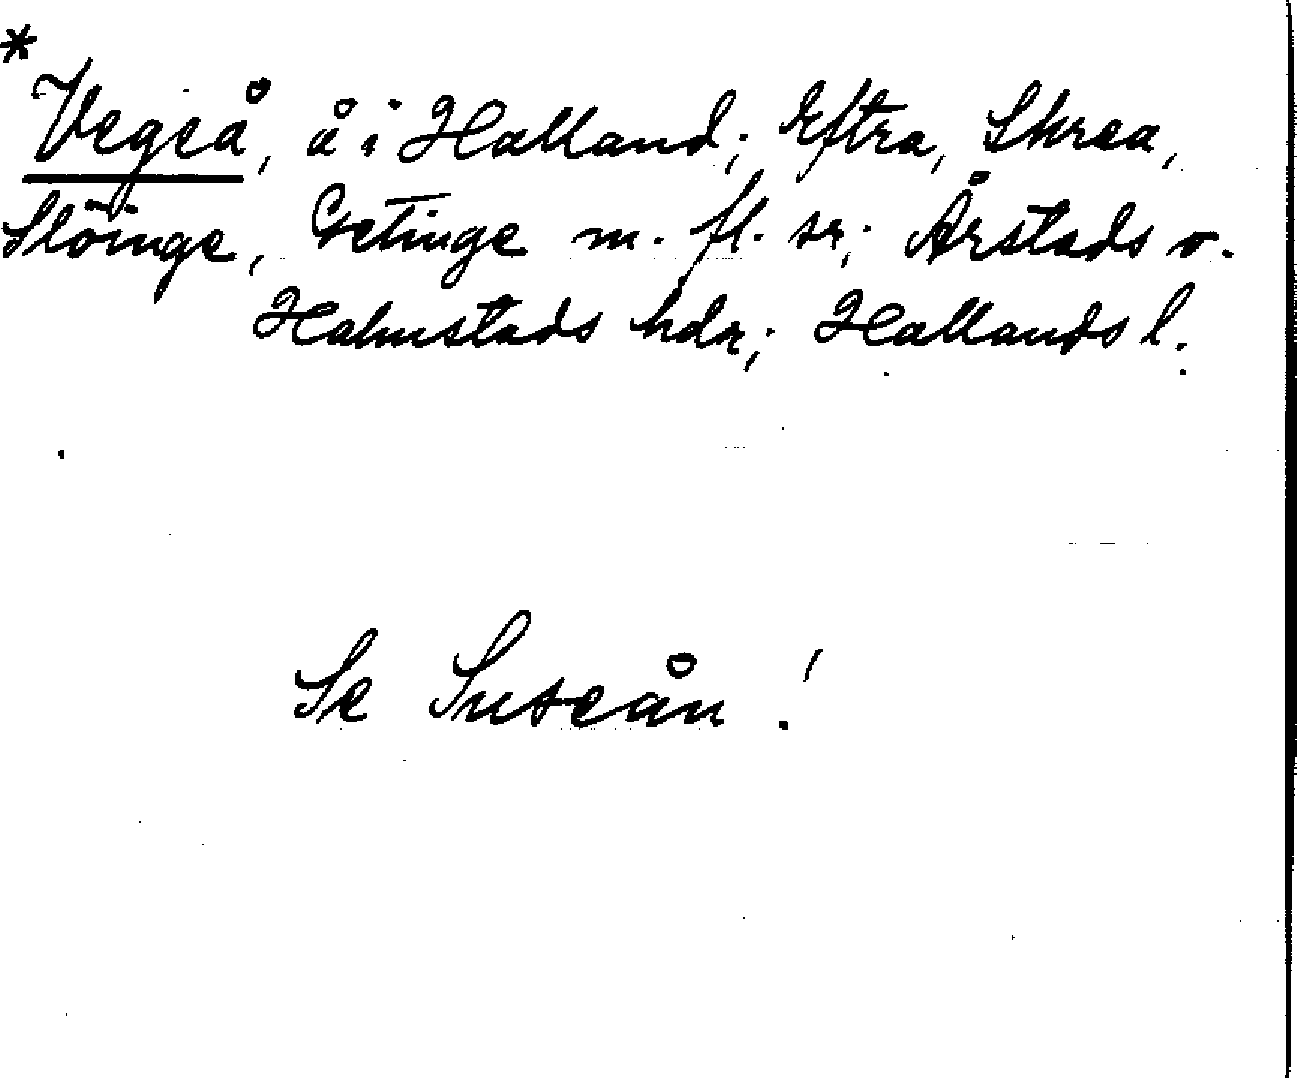 *
Vegeå, å i Halland; Eftra, Skrea,
Slöinge, Getinge m. fl. sr; Årstads o.
Halmstads hdr; Hallands l.
Se Suseån!